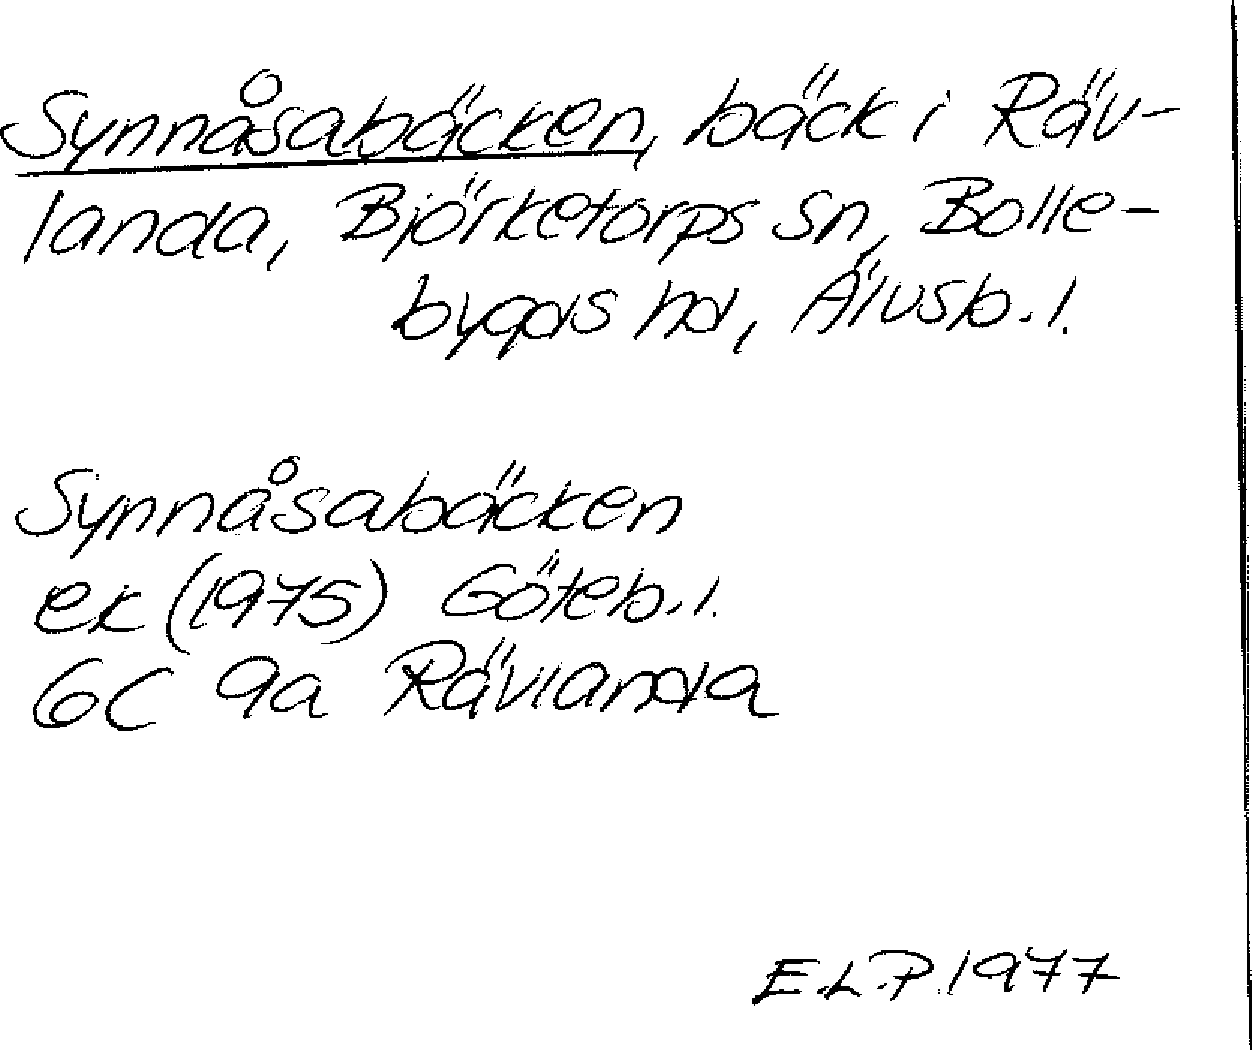 Synnåsabäcken, bäck i Räv-
landa, Björketorps sn, Bolle-
bygds hd, Älvsb. l.
Synnåsabäcken
ek (1975) Göteb. l.
6C 9a Rävlanda
E.L.P. 1977